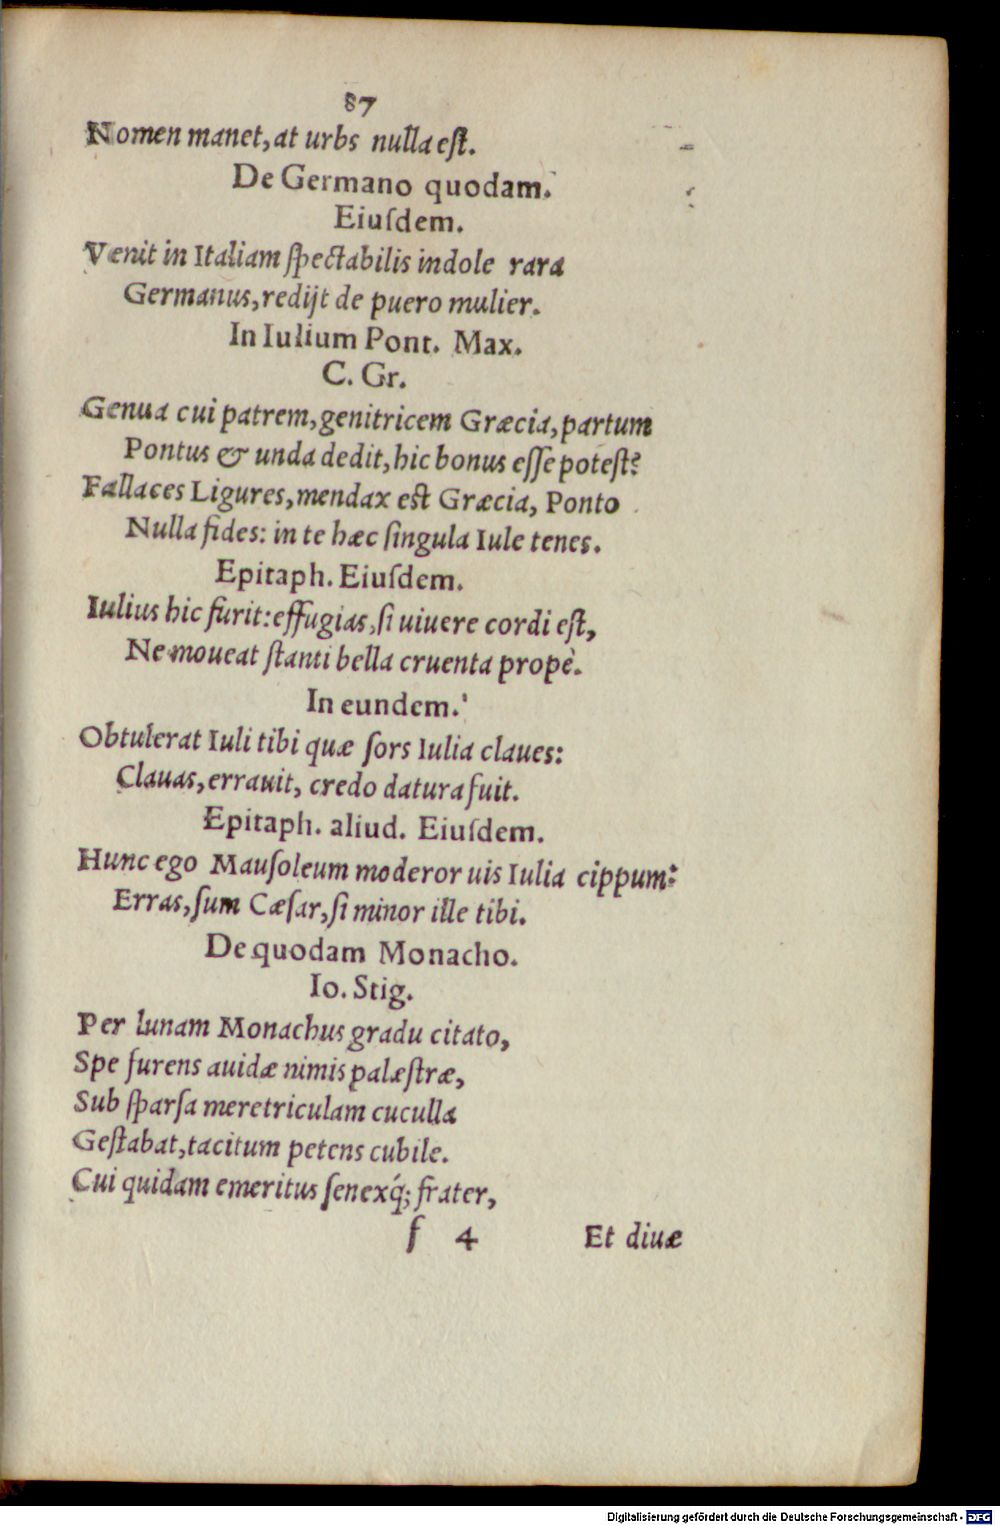 87
Nomen manet, at urbs nulla eſt.
De Germano quodam.
Eiuſdem.
Venit in Italiam ſpectabilis indole rara
Germanus, redijt de puero mulier.
In Iulium Pont. Max.
C. Gr.
Genua cui patrem, genitricem Græcia, partum
Pontus & unda dedit, hic bonus eſſe poteſt?
Fallaces Ligures, mendax est Græcia, Ponto
Nulla fides: in te hæc ſingula Iule tenes.
Epitaph. Eiuſdem.
Iulius hic furit: effugias, ſi uiuere cordi eſt,
Ne moueat ſtanti bella cruenta propè.
In eundem.
Obtulerat Iuli tibi quæ ſors Iulia claues:
Clauas, errauit, credo datura fuit.
Epitaph. aliud. Eiuſdem.
Hunc ego Mauſoleum moderor uis Iulia cippum?
Erras, ſum Cæſar, ſi minor ille tibi.
De quodam Monacho.
Io. Stig.
Per lunam Monachus gradu citato,
Spe furens auidæ nimis palæſtræ,
Sub ſparſa meretriculam cuculla
Geſtabat, tacitum petens cubile.
Cui quidam emeritus ſenexq́; frater,
f 4 Et diuæ
Digitalisierung gefördert durch die Deutsche Forschungsgemeinschaft - DFG